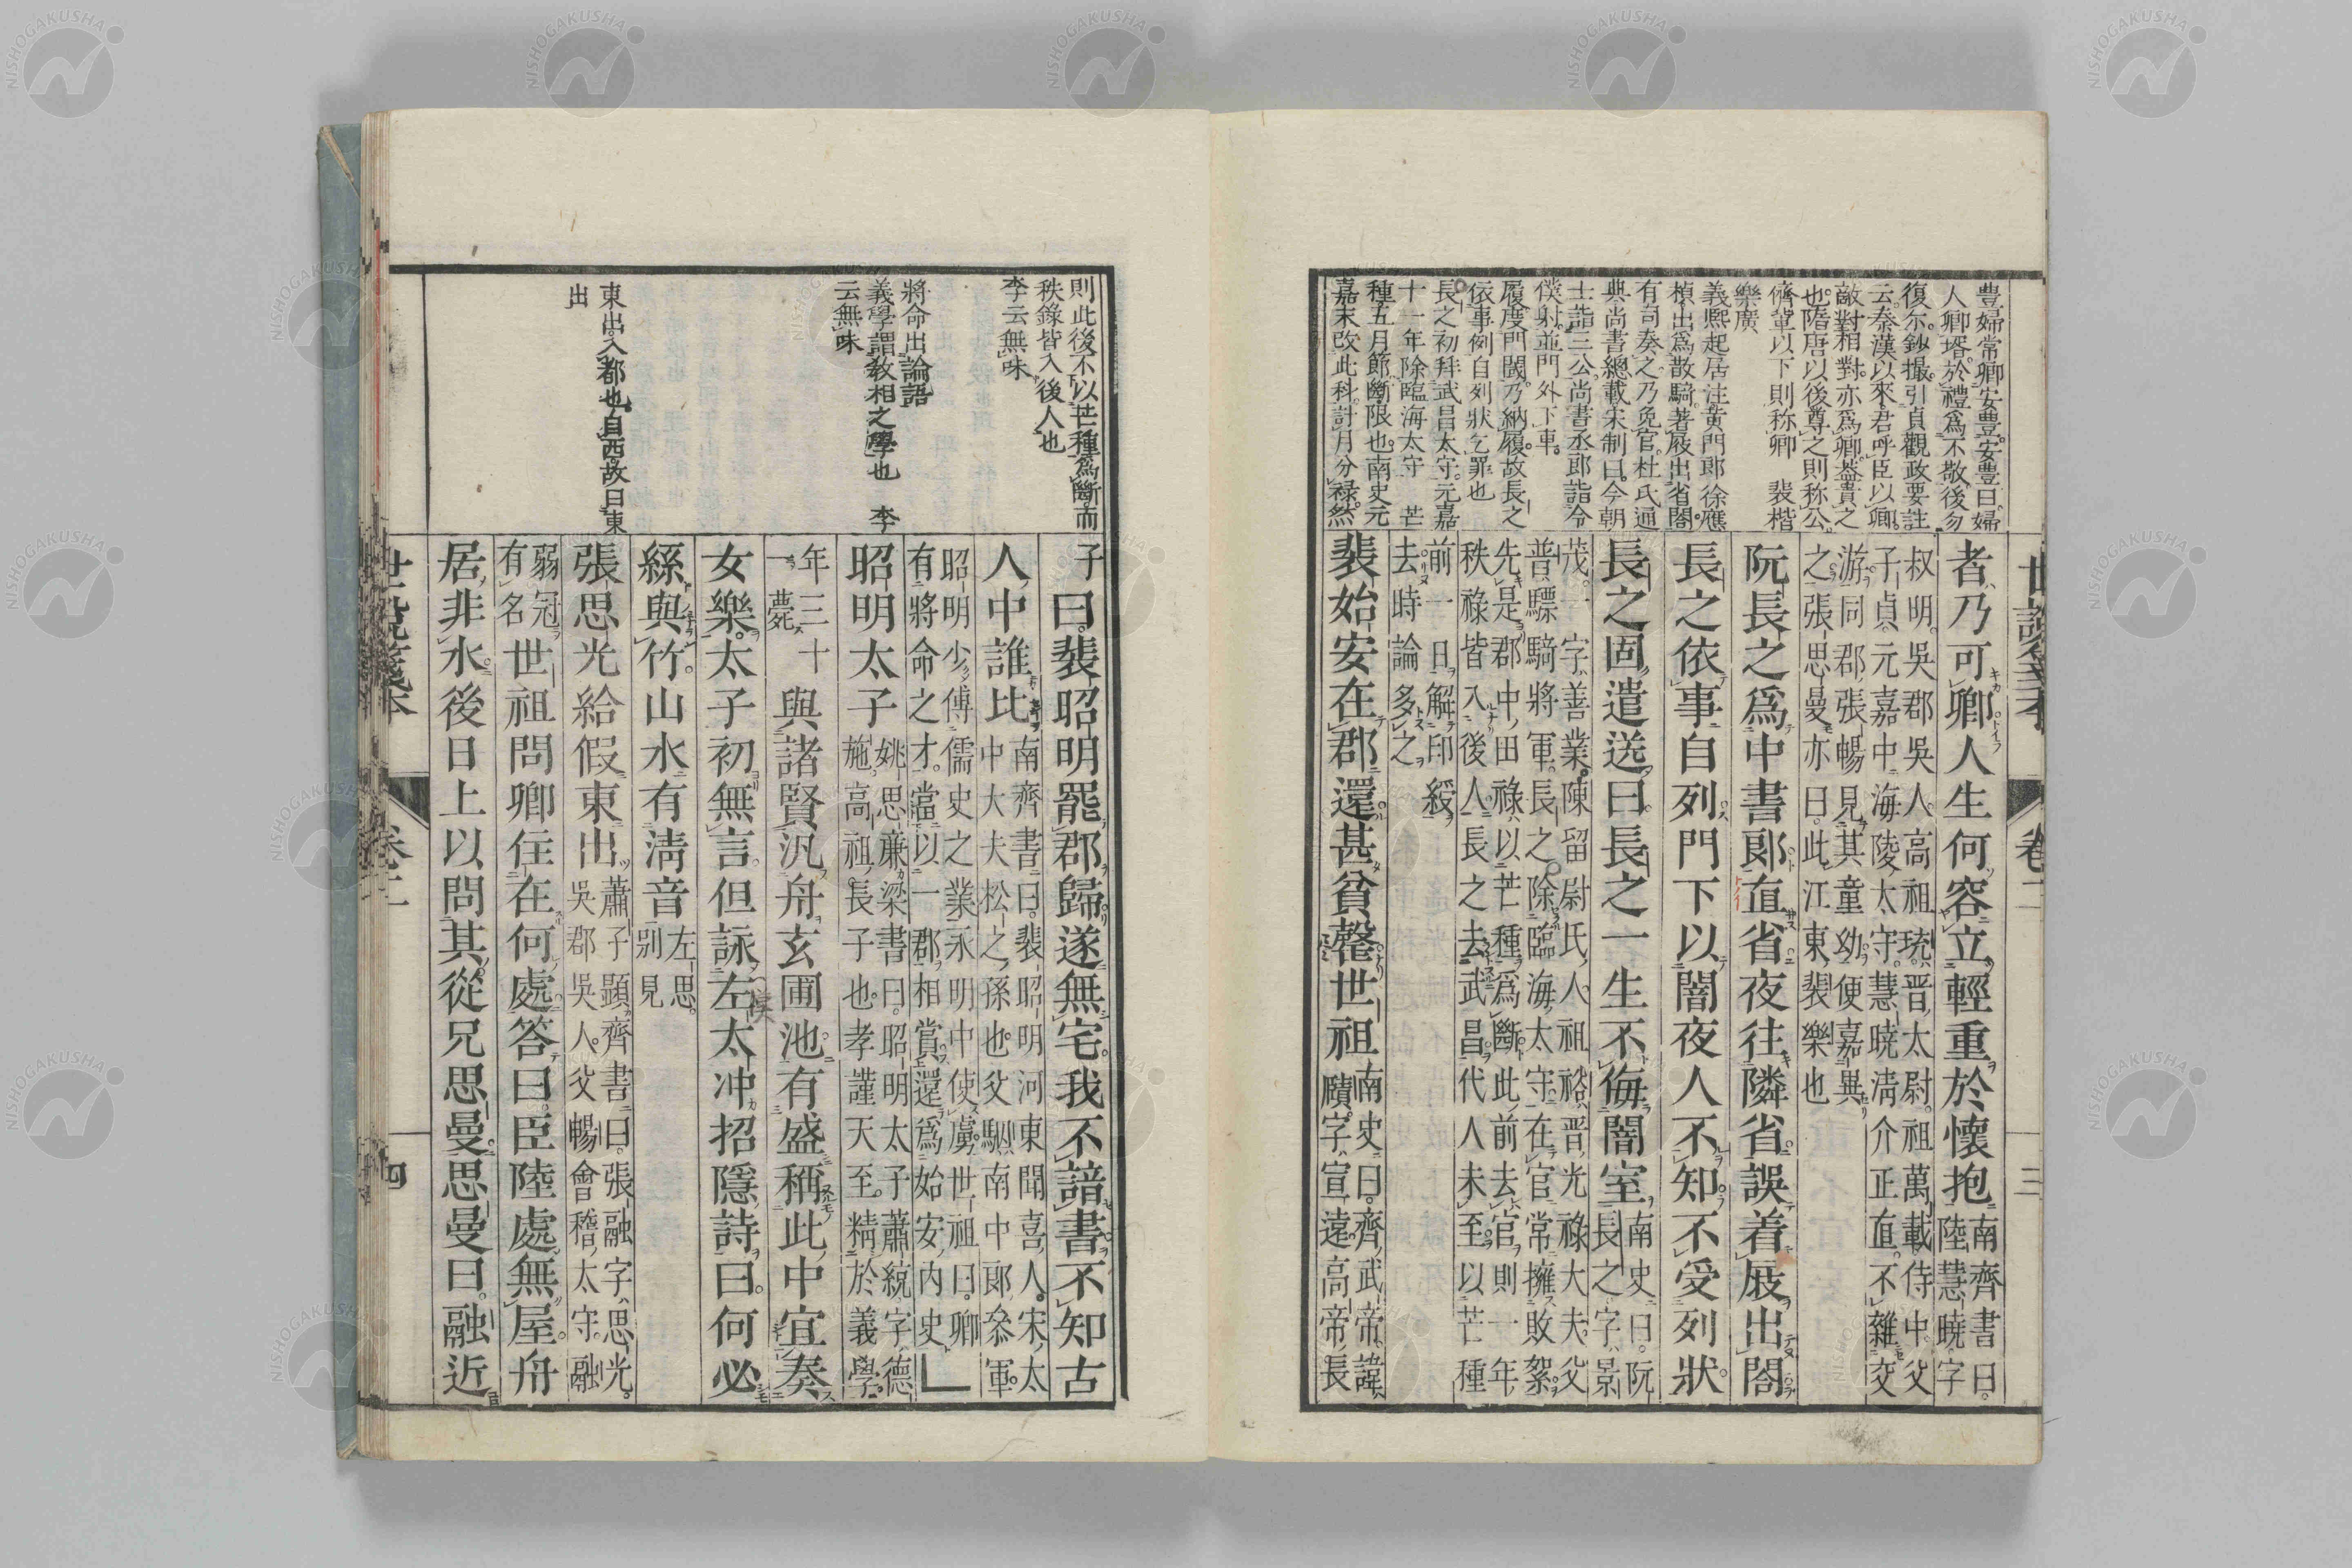 豊婦常卿安豊安豊曰婦
人卿壻於禮為不敬後勿
復尓鈔撮引貞觀政要註
云秦漢以來君呼臣以卿
敵對相對亦為卿蓋貴之
也隋唐以後尊之則称公
儕輩以下則称卿 裴楷
樂廣
義熙起居注黄門郎徐應
楨出為散騎著屐出省閤
有司奏之乃免官杜氏通
典尚書總載宋制曰今朝
士詣三公尚書丞郎詣令
僕射並門外下車
履度門閫乃納履故長之
依事例自列狀乞罪也
長之初拜武昌太守元嘉
十一年除臨海太守 芒
種五月節斷限也南史元
嘉末改此科計月分禄然
世説箋本 卷二 三
者乃可卿人生何容立輕重於懷抱南齊書曰
陸慧曉字
叔明吳郡吳人高祖琉晋太尉祖萬載侍中父
子貞元嘉中海陵太守慧曉淸介正直不雜交
游同郡張暢見其童幼便嘉異
之張思曼亦曰此江東裴樂也
阮長之爲中書郎直省夜往隣省誤着屐出閤
長之依事自列門下以闇夜人不知不受列狀
長之固遣送曰長之一生不侮闇室南史曰阮
長之字景
茂一字善業陳留尉氏人祖裕晋光祿大夫父
普驃騎將軍長之除臨海太守在官常擁敗絮
先是郡中田祿以芒種爲斷此前去官則一年
秩祿皆入後人長之去武昌代人未至以芒種
前一日解印綬
去時論多之
裴始安在郡還甚貧罄世祖南史曰齊武帝諱
賾字宣遠高帝長
則此後不以芒種為斷而
秩祿皆入後人也
李云無味
將命出論語
義學謂教相之學也 李
云無味
東出入都也自西故曰東
出
子曰裴昭明罷郡歸遂無宅我不諳書不知古
人中誰比南齊書曰裴昭明河東聞喜人宋太
中大夫松之孫也父駰南中郎參軍
昭明少傳儒史之業永明中使虜世祖曰卿
有將命之才當以一郡相賞還爲始安内史
昭明太子姚思廉梁書曰昭明太子蕭統字德
施高祖長子也孝謹天至精於義學
年三十
一薨
與諸賢汎舟玄圃池有盛稱此中宜奏
女樂太子初無言但詠左太冲招隱詩曰何必
絲與竹山水有淸音左思
別見
張思光給假東出蕭子顯齊書曰張融字思光
吳郡吳人父暢會稽太守融
弱冠
有名
世祖問卿住在何處答曰臣陸處無屋舟
居非水後日上以問其從兄思曼思曼曰融近
世説箋本 卷二 四
NISHOGAKUSHA